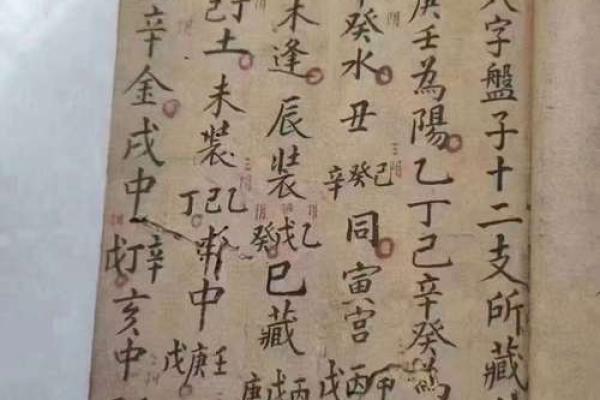 八字盤子十二支所藏
庚壬為陽乙丁己辛癸為
癸水丑己癸辛同寅宮甲丙戊
未逢辰裝乙戊癸巳藏丙戊庚
土未裝乙己丁中壬庚戊
辛金戌中辛丁戊亥中